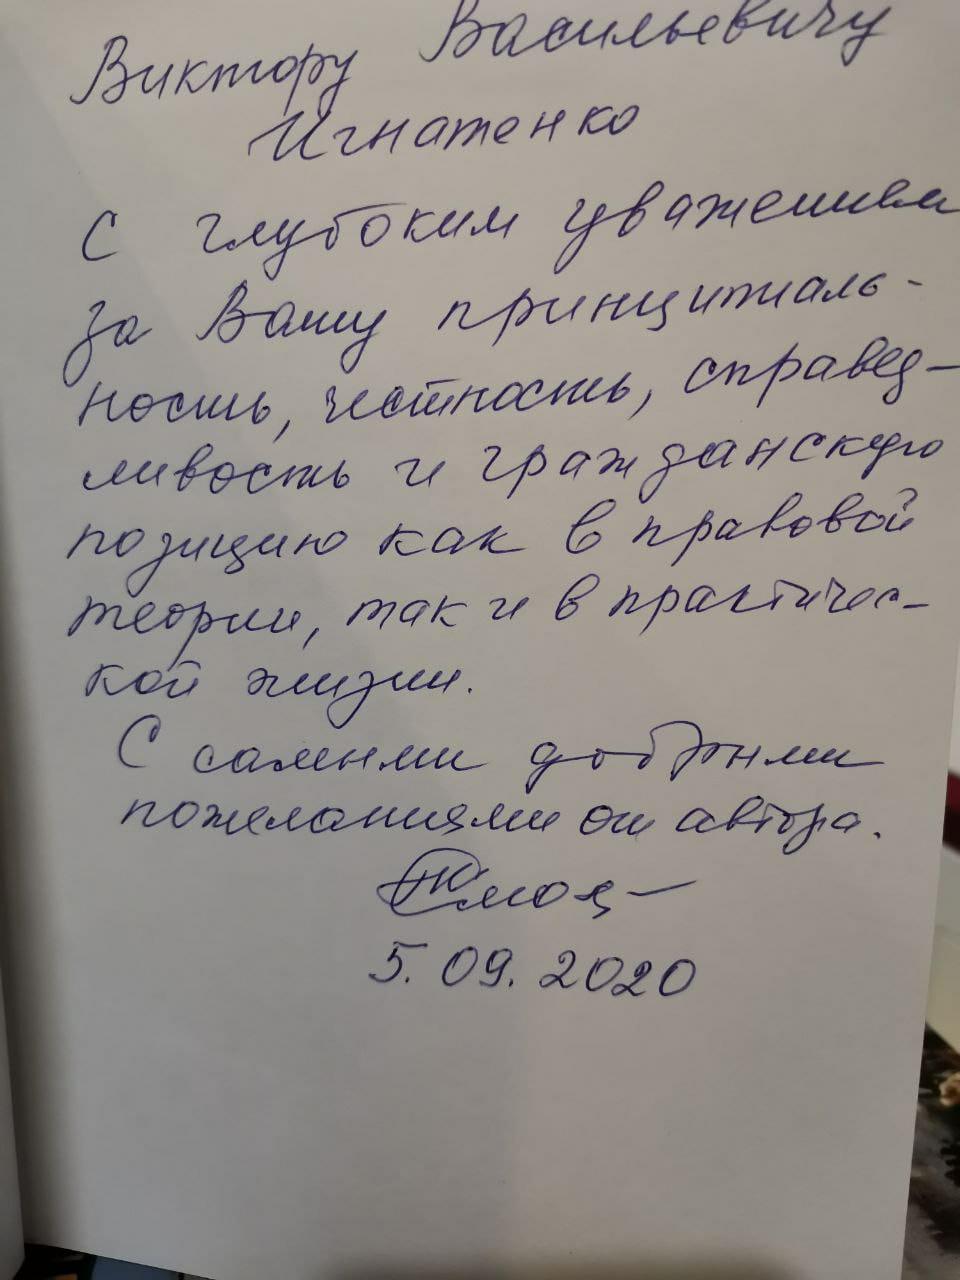 Виктору Васильевичу
Игнатенко
С глубоким уважением
за Вашу принципиаль-
ность, честность, справед-
ливость и гражданскую
позицию как в правовой
теории, так и в практичес-
кой жизни.
С самыми добрыми
пожеланиями от автора.
5.09.2020